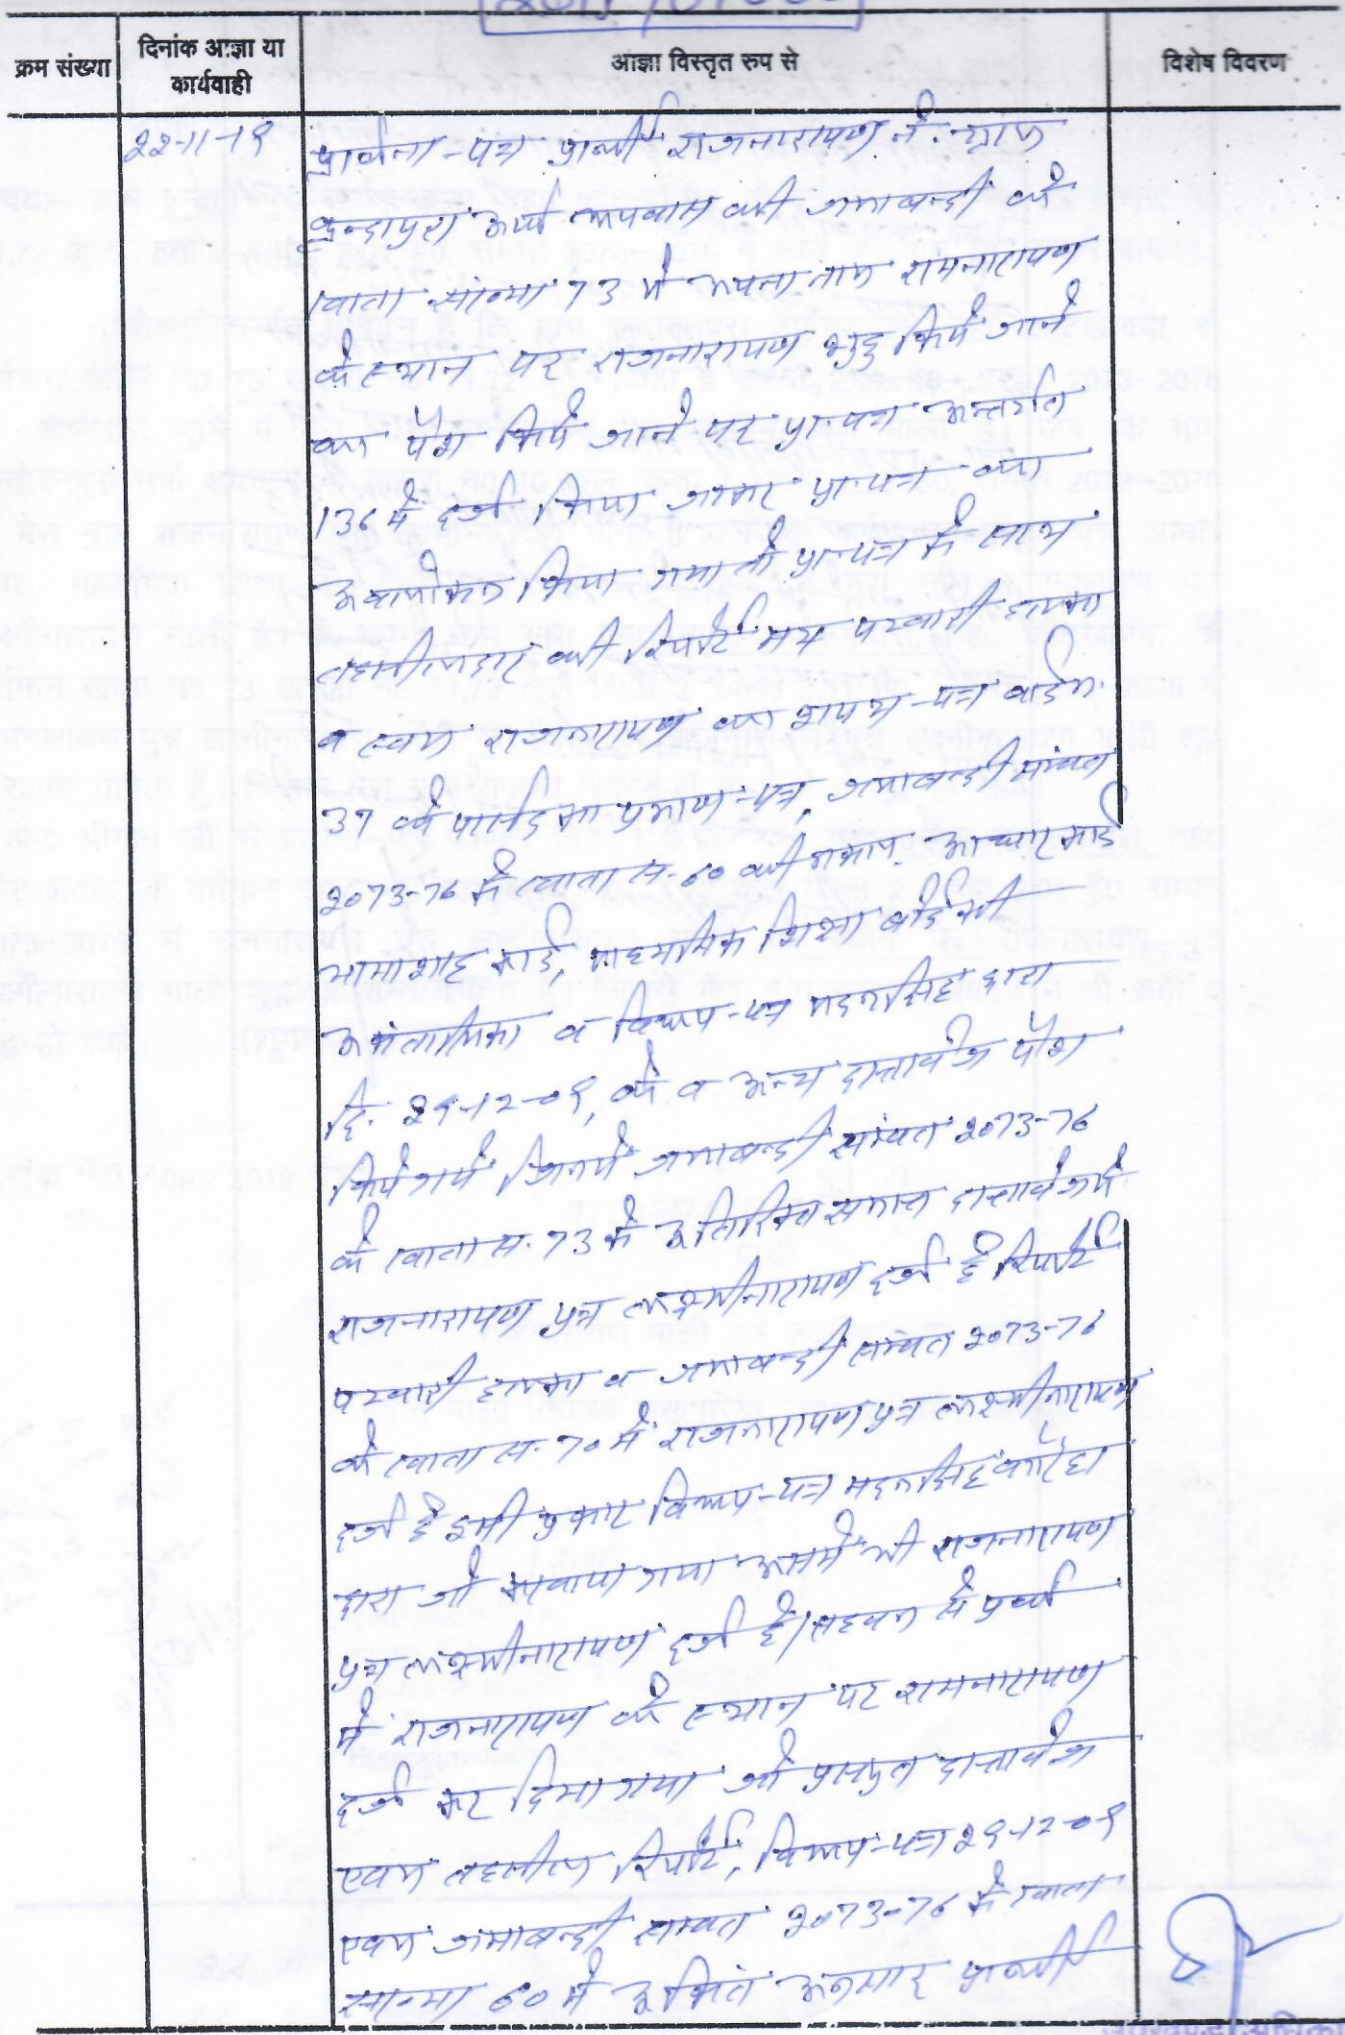 क्रम संख्या
दिनांक आज्ञा या
कार्यवाही
आज्ञा विस्तृत रुप से
विशेष विवरण
22-11-19
प्रार्थना-पत्र प्रार्थी राजनारायण ने ग्राम
की जमाबन्दी के
खाता संख्या 73 में अपना नाम रामनारायण
के स्थान पर राजनारायण शुद्ध किये जाने
का पेश किये जाने पर प्रा०पत्र अन्तर्गत
136 में दर्ज किया जाकर प्रा०पत्र का
अवलोकन किया गया तो प्रा०पत्र के साथ
तहसीलदार की रिपोर्ट मय पटवारी हल्का
व स्वयं राजनारायण का शपथ-पत्र वार्ड न.
37 के पार्षद का प्रमाण-पत्र, जमाबन्दी सांवत
2073-76 के खाता स. 60 की नकल आधार कार्ड
भामाशाह कार्ड, माध्यमिक शिक्षा बोर्ड की
अकंतालिका व विक्रय-पत्र मदनसिंह द्वारा
दि. 29-12-09, के व अन्य दस्तावेज पेश
किये गये जिनमें जमाबन्दी सांम्वत 2073-76
के खाता स. 73 के अतिरिक्त समस्त दस्तावेजो में
राजनारायण पुत्र लक्ष्मीनारायण दर्ज है रिपोर्ट
पटवारी हल्का व जमाबन्दी सम्वत 2073-76
के खाता स. 70 में राजनारायण पुत्र लक्ष्मीनारायण
दर्ज है इसी प्रकार विक्रय-पत्र मदनसिंह
द्वारा जो करवाया गया उसमें भी राजनारायण
पुत्र लक्ष्मीनारायण दर्ज है। सहवन से
में राजनारायण के स्थान पर रामनारायण
दर्ज कर दिया गया जो प्रस्तुत दस्तावेज
एवंम तहसील रिपोर्ट, विक्रय-पत्र 29-12-09
एवंम जमाबन्दी सम्वत 2073-76 के खाता
संख्या 60 में अंकित अनुसार प्रार्थी